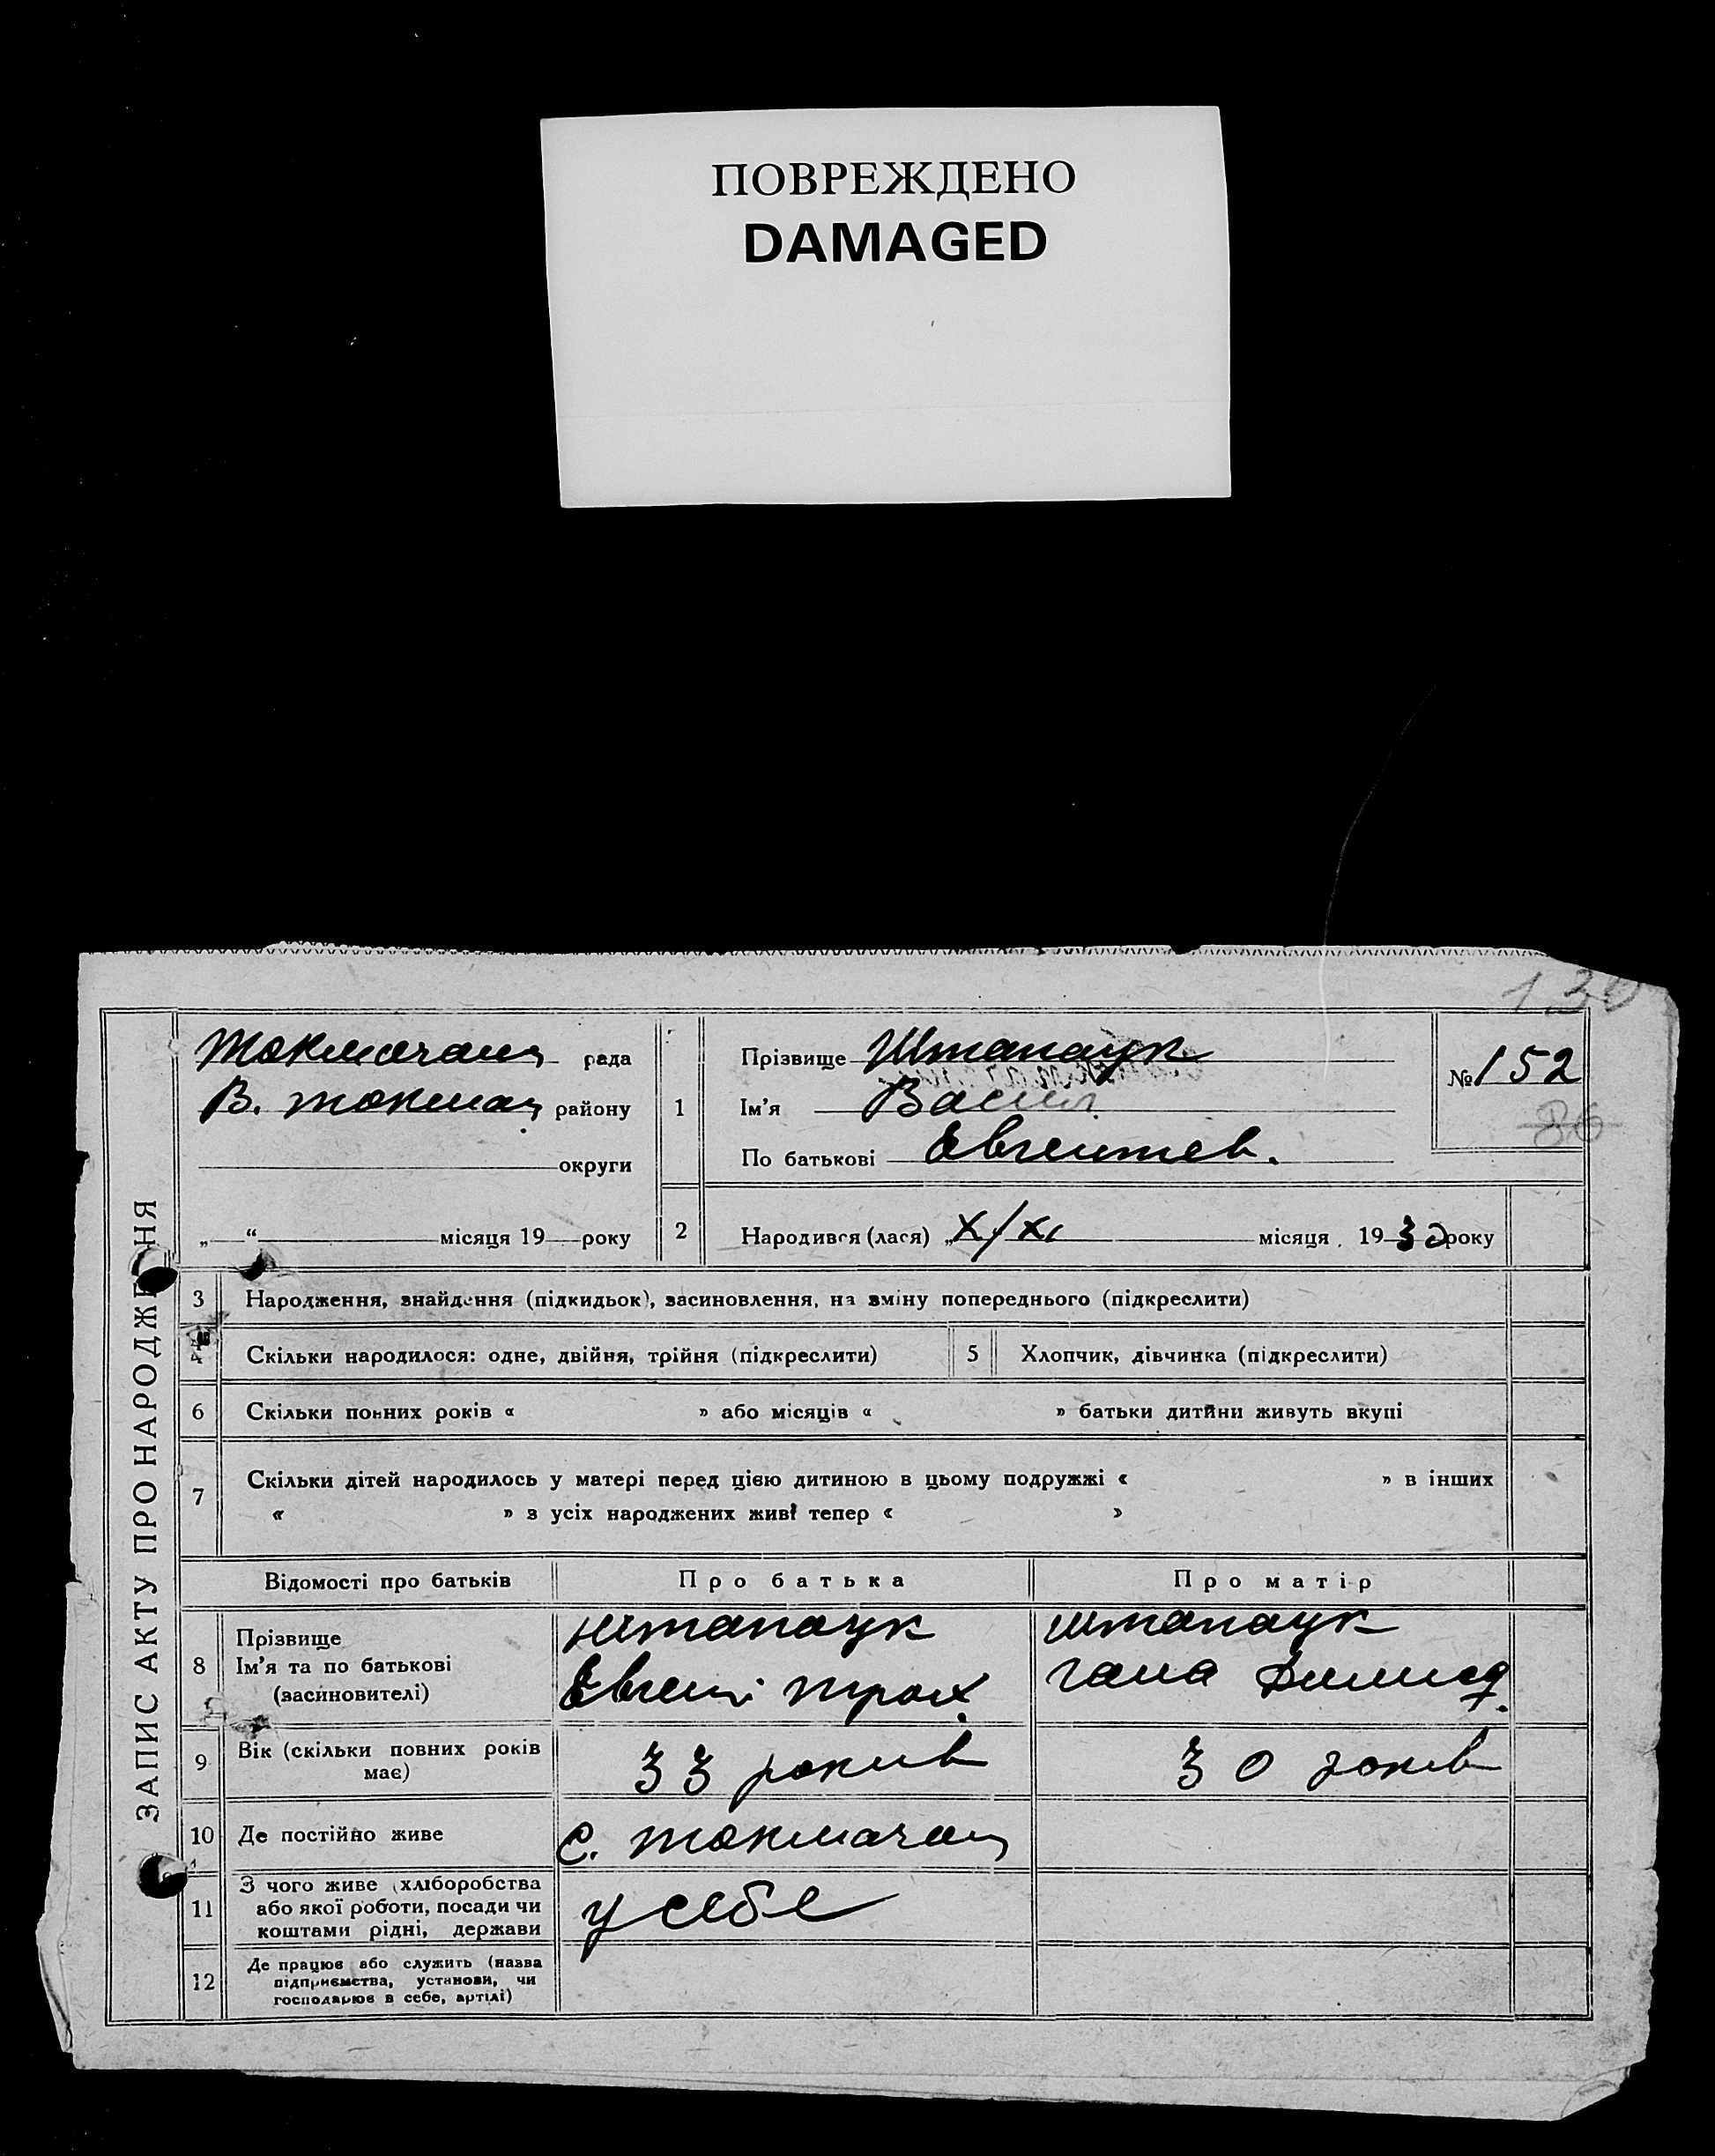 ПОВРЕЖДЕНО
DAMAGED
130
ЗАПИС АКТУ ПРО НАРОДЖЕННЯ
Токмачанс рада
В. токмац району
округи
„ “ місяця 19 року
1
Прізвище Штапаук
Ім'я Васил
По батькові Евгентев.
№ 152
86
2
Народився (лася) „X/XI місяця 1930 року
3 Народження, знайдення (підкидьок), засиновлення, на зміну попереднього (підкреслити)
4 Скільки народилося: одне, двійня, трійня (підкреслити) 5 Хлопчик, дівчинка (підкреслити)
6 Скільки повних років « » або місяців « » батьки дитини живуть вкупі
7 Скільки дітей народилось у матері перед цією дитиною в цьому подружжі « » в інших
« » з усіх народжених живі тепер « »
Відомості про батьків Про батька Про матір
8 Прізвище
Ім'я та по батькові
(засиновителі)
Штапаук
Евгені трох.
штапаук
гана Демид.
9 Вік (скільки повних років
має)
33 роков
30 роков
10 Де постійно живе с. токмачан
11 З чого живе (хліборобства
або якої роботи, посади чи
коштами рідні, держави
у себе
12 Де працює або служить (назва
підприємства, установи, чи
господарює в себе, артілі)